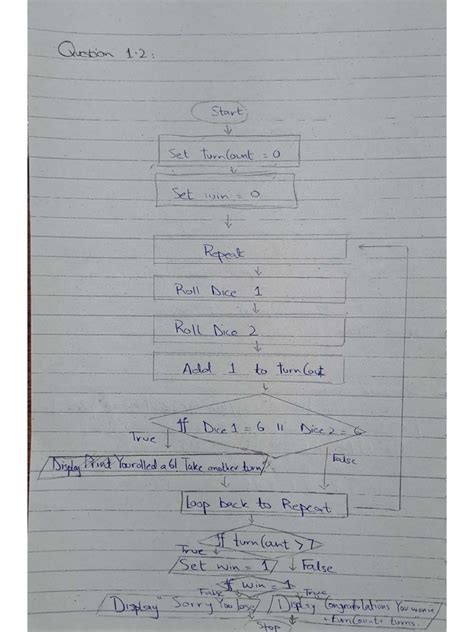 Question 1.2:
Start
Set turnCount = 0
Set win = 0
Repeat
Roll Dice 1
Roll Dice 2
Add 1 to turnCout
If Dice 1 = 6 || Dice 2 = 6
True
Display Print You rolled a 6! Take another turn
False
Loop back to Repeat
If turnCount > 7
True
False
Set win = 1
If win = 1
False
True
Display "Sorry You lose
Display Congratulations You won in
+turnCount+ turns.
Stop